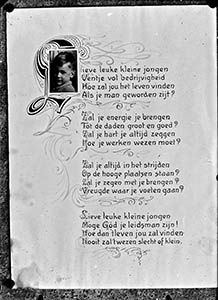 Lieve leuke kleine jongen
Ventje vol bedrijvigheid
Hoe zal jou het leven vinden
Als je man geworden zijt?
Zal je energie je brengen
Tot de daden groot en goed?
Zal je hart je altijd zeggen
Hoe je werken wezen moet?
Zal je altijd in het strijden
Op de hooge plaatsen staan?
Zal je zegen met je brengen?
Vreugde waar je voeten gaan?
Lieve leuke kleine jongen
Moge God je leidsman zijn!
Hoe dan 't leven jou zal vinden
Nooit zal 't wezen slecht of klein.